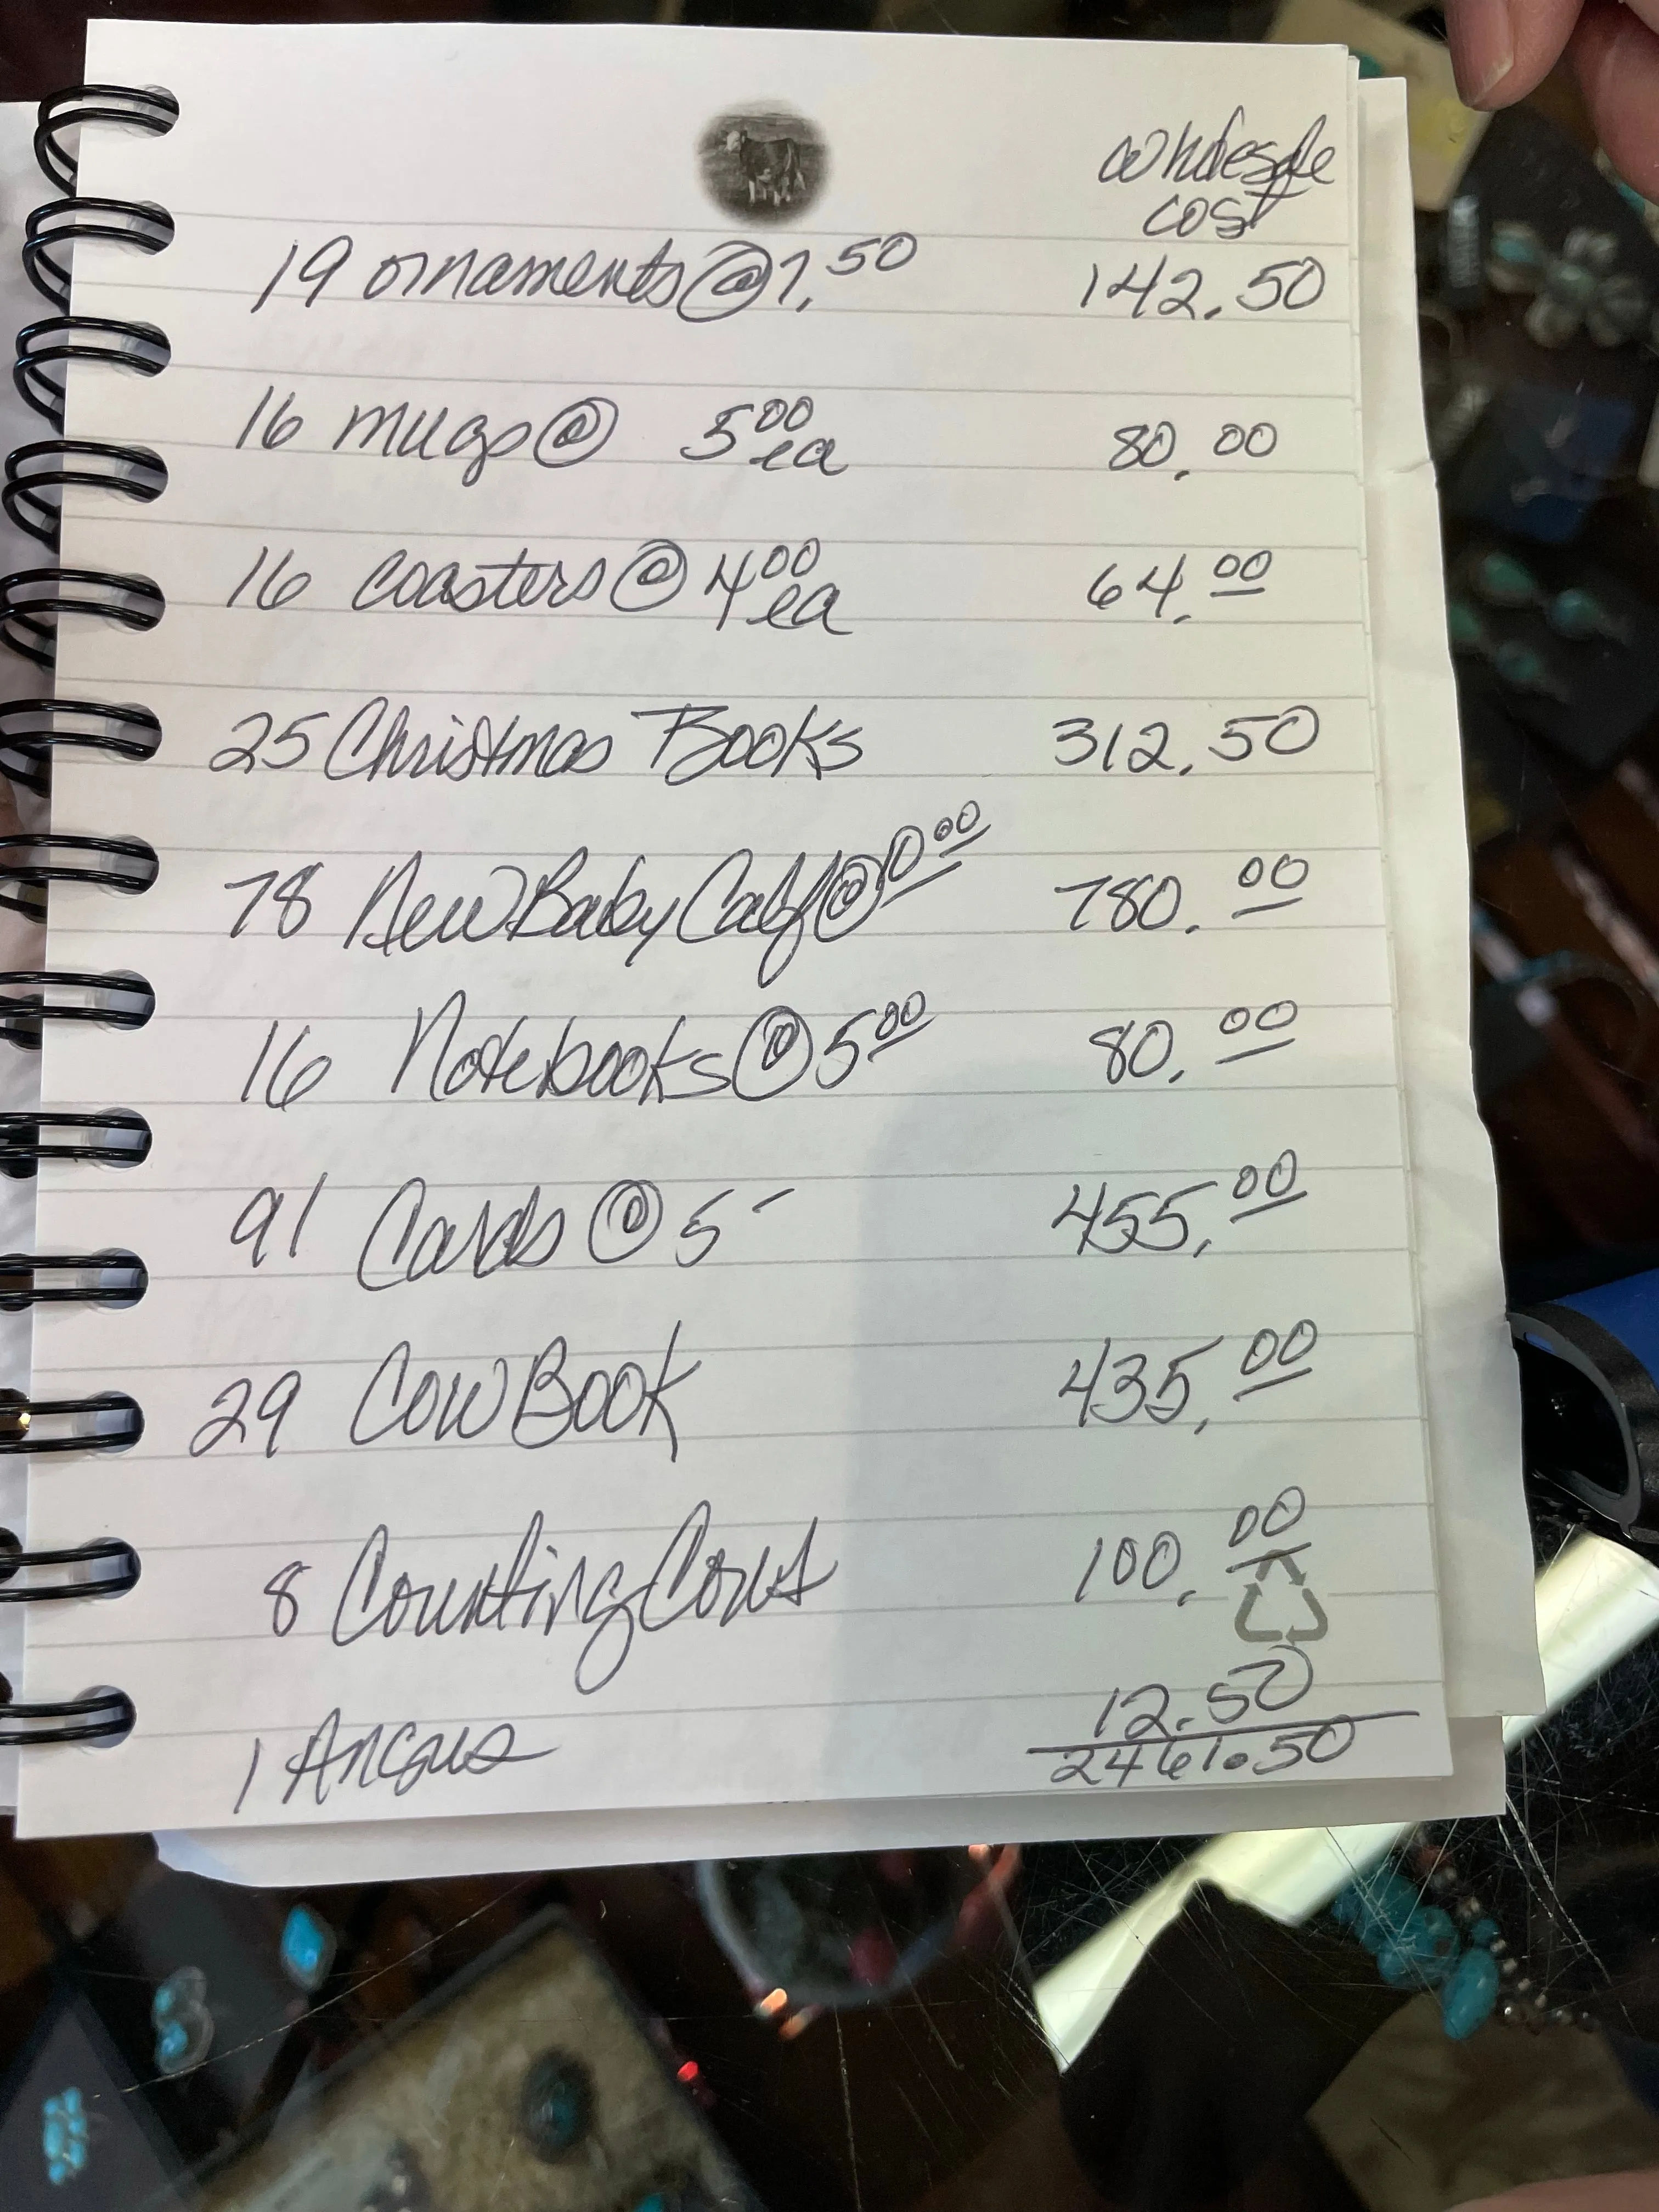 wholesale
cost
19 ornaments @ 7.50 142.50
16 mugs @ 5 00 ea 80.00
16 Coasters @ 4 00 ea 64.00
25 Christmas Books 312.50
78 New Baby Calf @ 10 00 780.00
16 Notebooks @ 5 00 80.00
91 Cards @ 5 - 455.00
29 Cow Book 435.00
8 Counting Cows 100.00
1 Angus 12.50
2461.50